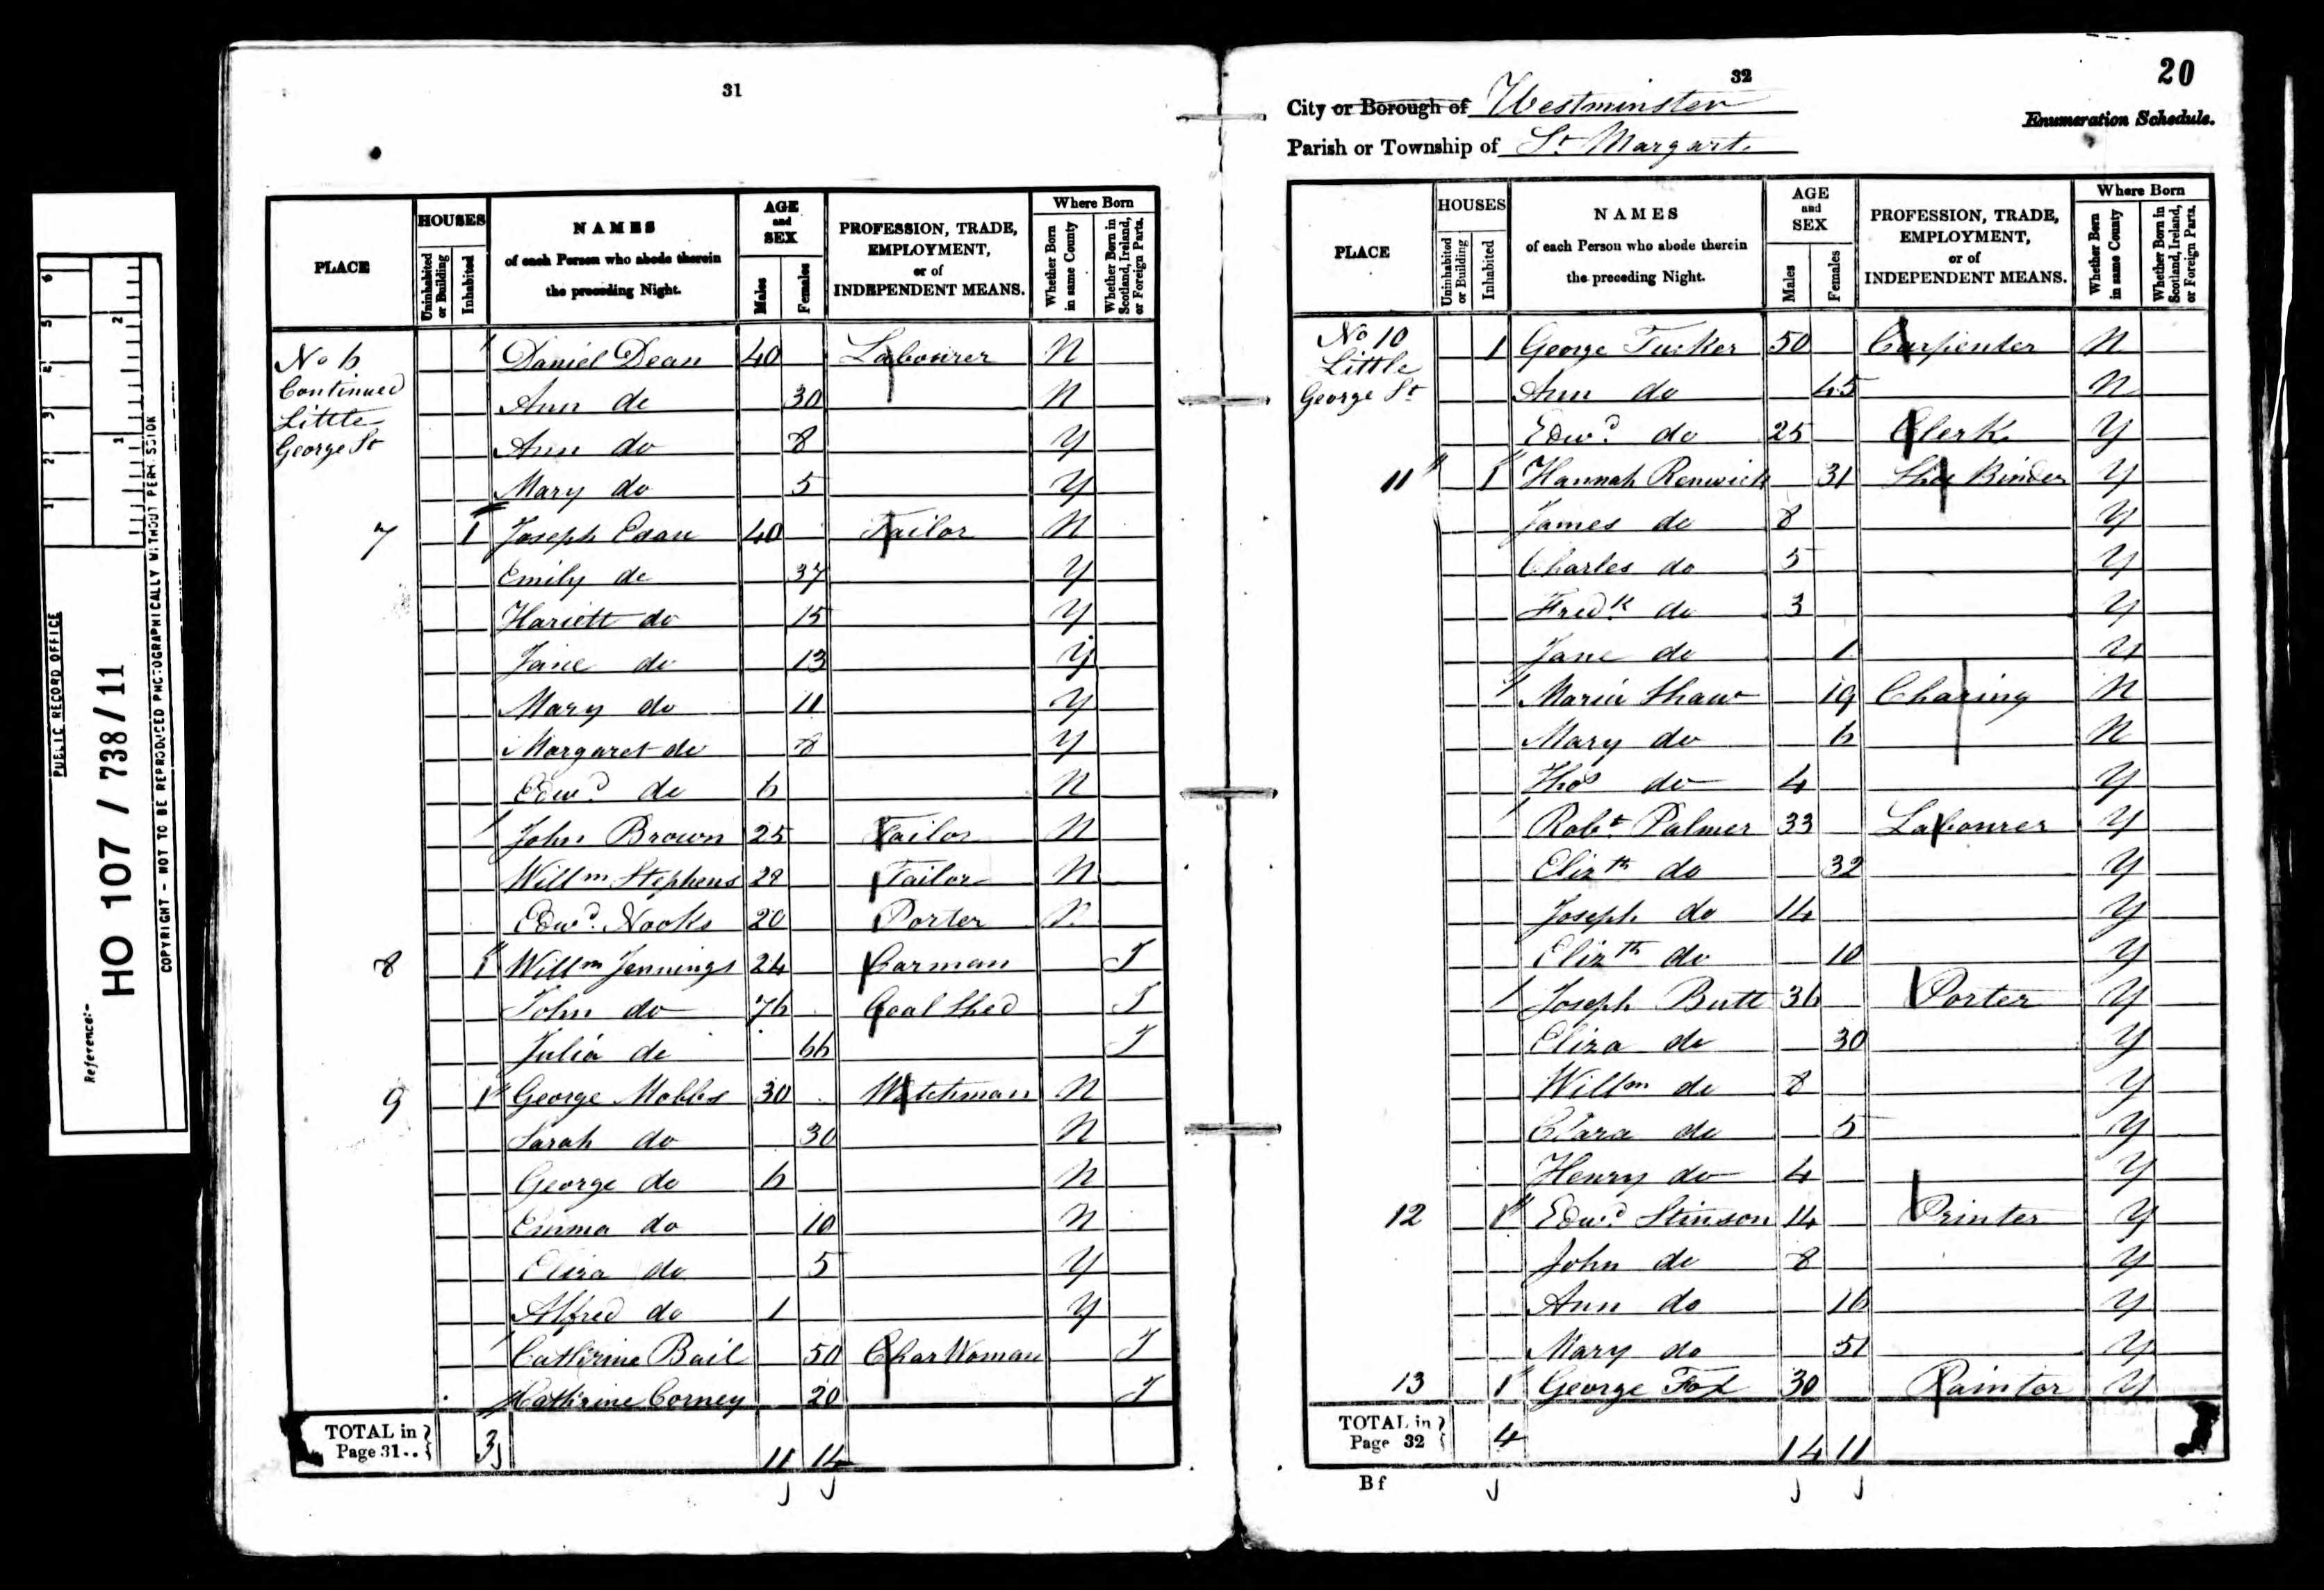 PUBLIC RECORD OFFICE
1 2 3 4 5 6
1 2
Reference:-
HO 107 / 738/11
COPYRIGHT - NOT TO BE REPRODUCED PHOTOGRAPHICALLY WITHOUT PERMISSION
31
PLACE HOUSES NAMES of each Person who abode therein the preceding Night. AGE and SEX PROFESSION, TRADE, EMPLOYMENT, or of INDEPENDENT MEANS. Where Born
Uninhabited or Building Inhabited Males Females Whether Born in same County Whether Born in Scotland, Ireland, or Foreign Parts.
No 6 Daniel Dean 40 Labourer N
Continued Ann do 30 N
Little Ann do 8 Y
George St Mary do 5 Y
7 1 Joseph Edan 40 Tailor N
Emily do 37 Y
Hariett do 15 Y
Jane do 13 Y
Mary do 11 Y
Margaret do 8 Y
Edwd do 6 N
John Brown 25 Tailor N
Willm Stephens 28 Tailor N
Edwd Nooks 20 Porter N
8 1 Willm Jennings 24 Carman I
John do 76 Coal Shed I
Julia do 66 I
9 1 George Mobbs 30 Watchman N
Sarah do 30 N
George do 6 N
Emma do 10 N
Eliza do 5 Y
Alfred do 1 Y
Cathrine Bail 50 Char Woman I
Cathrine Corney 20 I
TOTAL in Page 31.. 3 11 14
32
20
City or Borough of Westminster
Enumeration Schedule.
Parish or Township of St Margart
PLACE HOUSES NAMES of each Person who abode therein the preceding Night. AGE and SEX PROFESSION, TRADE, EMPLOYMENT, or of INDEPENDENT MEANS. Where Born
Uninhabited or Building Inhabited Males Females Whether Born in same County Whether Born in Scotland, Ireland, or Foreign Parts.
No 10 1 George Tucker 50 Carpenter N
Little
George St Ann do 45 N
Edwd do 25 Clerk Y
11 1 Hannah Renwick 31 Shoe Binder Y
James do 8 Y
Charles do 5 Y
Fredk do 3 Y
Jane do 1 Y
Maria Shaw 19 Charing N
Mary do 6 N
Thos do 4 Y
Robt Palmer 33 Labourer Y
Elizth do 32 Y
Joseph do 14 Y
Elizth do 10 Y
Joseph Butt 36 Porter Y
Eliza do 30 Y
Willm do 8 Y
Clara do 5 Y
Henry do 4 Y
12 1 Edwd Stinson 14 Printer Y
John do 8 Y
Ann do 16 Y
Mary do 51 Y
13 1 George Fox 30 Painter Y
TOTAL in Page 32 4 14 11
B f